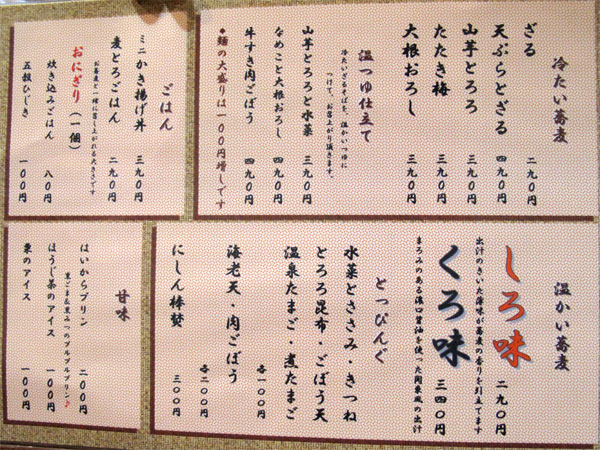 冷たい蕎麦
ざる 二九〇円
天ぷらとざる 四九〇円
山芋とろろ 三九〇円
たたき梅 三九〇円
大根おろし 三九〇円
温つゆ仕立て
冷たいざるそばを、温かいつゆに
つけて、お召上がり頂きます。
山芋とろろと水菜 三九〇円
なめこと大根おろし 四九〇円
牛すき肉ごぼう 四九〇円
◆麺の大盛りは一〇〇円増しです
ごはん
ミニかき揚げ丼 三九〇円
麦とろごはん 二九〇円
お蕎麦と一緒に召し上がれる大きさです
おにぎり(一個)
炊き込みごはん 八〇円
五穀ひじき 一〇〇円
温かい蕎麦
しろ味 二九〇円
出汁のきいた薄味が蕎麦の香りを引立てます
くろ味 三四〇円
まろみのある濃口醤油を使った関東風の出汁
とっぴんぐ
水菜とささみ・きつね
とろろ昆布・ごぼう天
温泉たまご・煮たまご
各一〇〇円
海老天・肉ごぼう
各二〇〇円
にしん棒煮 三〇〇円
甘味
はいからプリン 二〇〇円
黒ごま&黒みつのプルプルプリン♪
ほうじ茶のアイス 一〇〇円
栗のアイス 一〇〇円